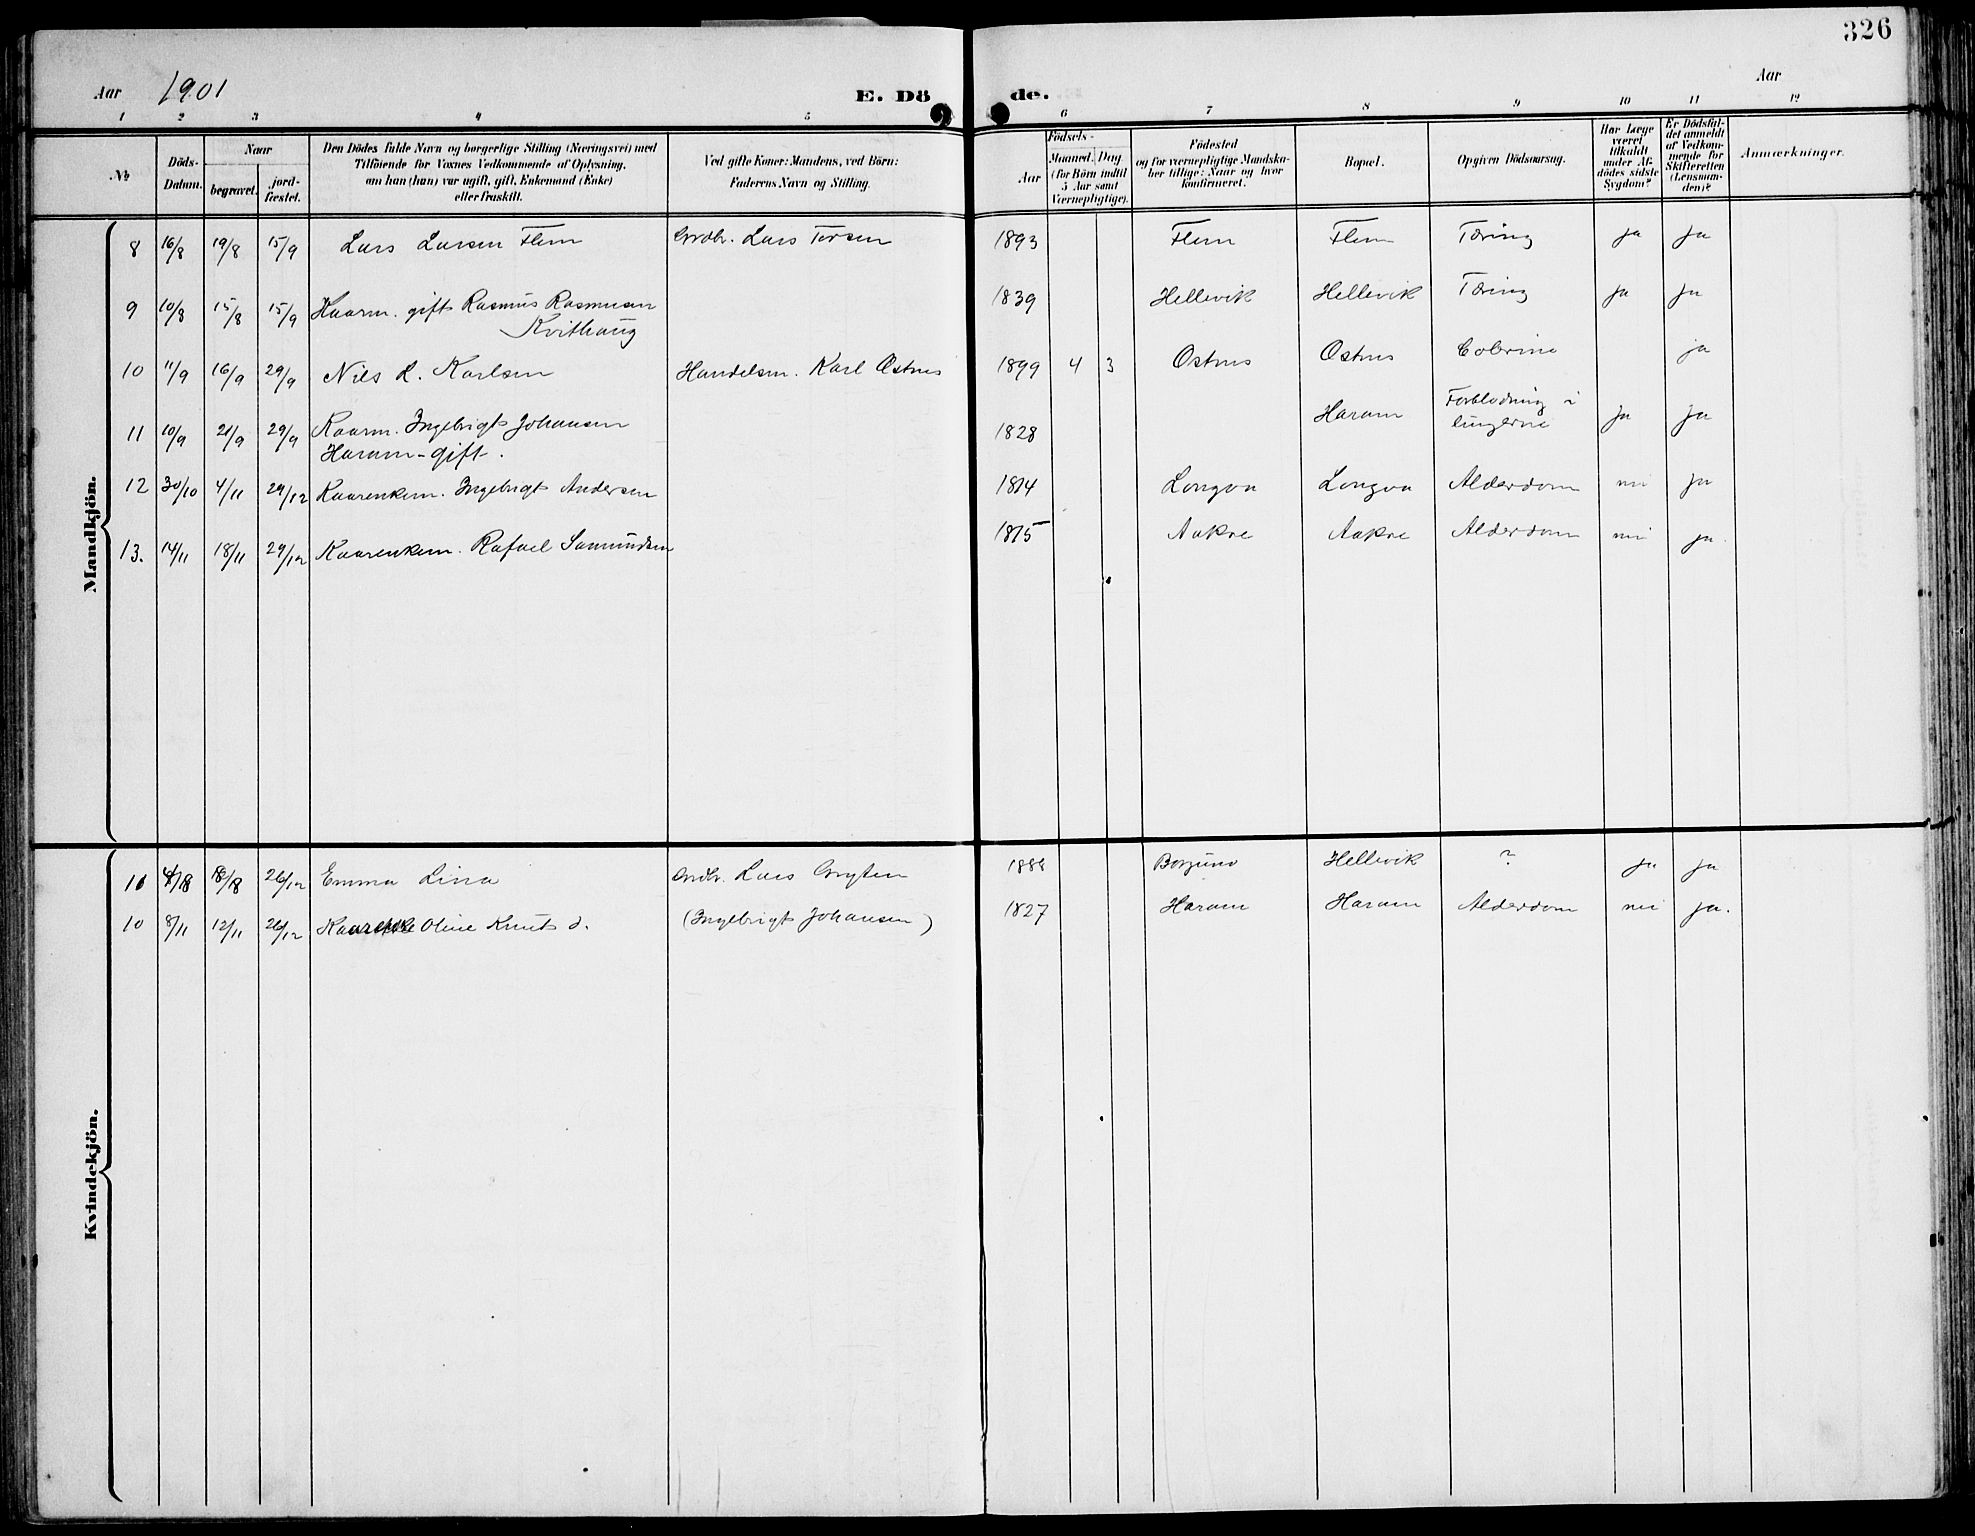 326
Aar 1901 E. Dö de. Aar
1 2 3 4 5 6 7 8 9 10 11 12
№
Döds-
Datum.
Naar
begravet.
jord-
fæstet.
Den Dödes fulde Navn og borgerlige Stilling (Næringsvei) med
Tilföiende for Voxnes Vedkommende af Oplysning,
om han (hun) var ugift, gift, Enkemand (Enke)
eller fraskilt.
Ved gifte Koner: Mandens, ved Börn:
Faderens Navn og Stilling.
Födsels-
Aar
Maaned. Dag
(for Börn indtil
5 Aar samt
Værnepligtige).
Födested
og for værnepligtige Mandska-
ber tillige: Naar og hvor
konfirmeret.
Bopæl.
Opgiven Dödsaarsag.
Har Læge
været
tilkaldt
under Af-
dödes sidste
Sygdom?
Er Dödsfal-
det anmeldt
af Vedkom-
mende for
Skifteretten
(Lensman-
den)?
Anmærkninger.
Mandkjön.
8 16/8 19/8 15/9 Lars Larsen Flem Grdbr. Lars Torsen 1893 Flem Flem Tæring ja ja
9 10/8 15/8 15/9 Kaarm. gift Rasmus Rasmusen 1839 Hellevik Hellevik Tæring ja ja
Kvithaug
10 11/9 16/9 29/9 Nils K. Karlsen Handelsm. Karl Østnes 1899 4 3 Østnes Østnes Colerine ja
11 10/9 21/9 29/9 Kaarm. Ingebrigt Johansen 1828 Haram Forblødning i
Haram - gift. lungerne ja ja
12 30/10 4/11 29/12 Kaarenkem. Ingebrigt Andersen 1814 Longva Longva Alderdom nei ja
13. 14/11 18/11 29/12 Kaarenkem. Rafael Samundsen 1815 Aakre Aakre Alderdom nei ja.
Kvindekjön.
26/12 Emma Lina Grdbr. Lars Gryten Borgund Hellevik ? ja ja
10 8/11 12/11 26/12 Oline Knuts d. (Ingebrigt Johansen) 1827 Haram Haram Alderdom nei ja.